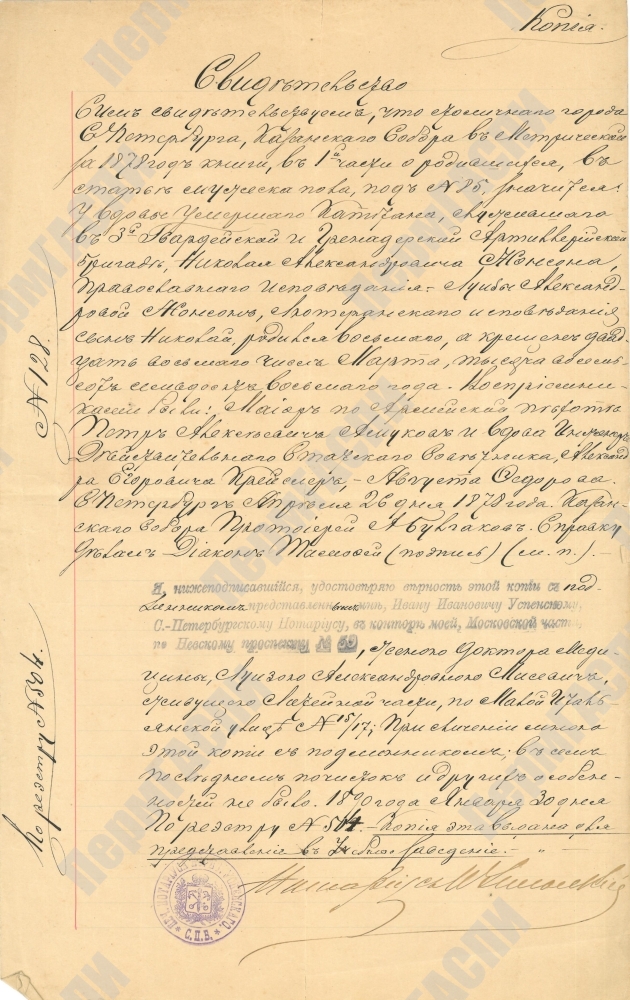 Копія.
Свидѣтельство
Симъ свидѣтельствуемъ, что столичнаго города
С. Петербурга, Казанскаго Собора въ Метрической
за 1878 годъ книги, въ 1й части о родившихся, въ
статьѣ мужеска пола, подъ № 85. значится:
У вдовы умершаго Капитана, служившаго
въ 3й Гвардейской и Гренадерской Артиллерійской
бригадѣ, Николая Александровича Жонсона,
Православнаго Исповѣданія - Луизы Александ-
ровой Жонсонъ, Лютеранскаго исповѣданія
сынъ Николай, родился восьмаго, а крещенъ двад-
цать восьмаго чиселъ Марта, тысяча восемь-
сотъ семьдесятъ восьмаго года. Воспріемни-
ками были: Маіоръ по Армейской пѣхотѣ
Петръ Алексѣевичъ и вдова
Дѣйствительнаго Статскаго Совѣтника, Александ-
ра Егоровича - Августа Федорова.
С. Петербургъ Апрѣля 26 дня 1878 года. Казан-
скаго Собора Протоіерей А. Булгаковъ. Справку
дѣлалъ Діаконъ (подпись) (м. п.). —
№ 128.
Я, нижеподписавшійся, удостовѣряю вѣрность этой копіи съ под-
линникомъ представленнымъ мнѣ, Ивану Ивановичу Успенскому,
С.-Петербургскому Нотаріусу, въ конторѣ моей, Московской части,
по Невскому проспекту № 59, Женою Доктора Меди-
цины, Луизою Александровною Мисевичъ,
живущею Литейной части, по Малой Италь-
янской улицѣ № 15/17; При сличеніи мною
этой копіи съ подлинникомъ, въ семъ
послѣднемъ почистокъ и другихъ особен-
ностей не было. 1890 года Января 30 дня
По реэстру № 504. - Копія эта выдана для
представленія въ Учебное Заведеніе. —
По реэстру № 504.
Нотаріусъ
С. П. Б.